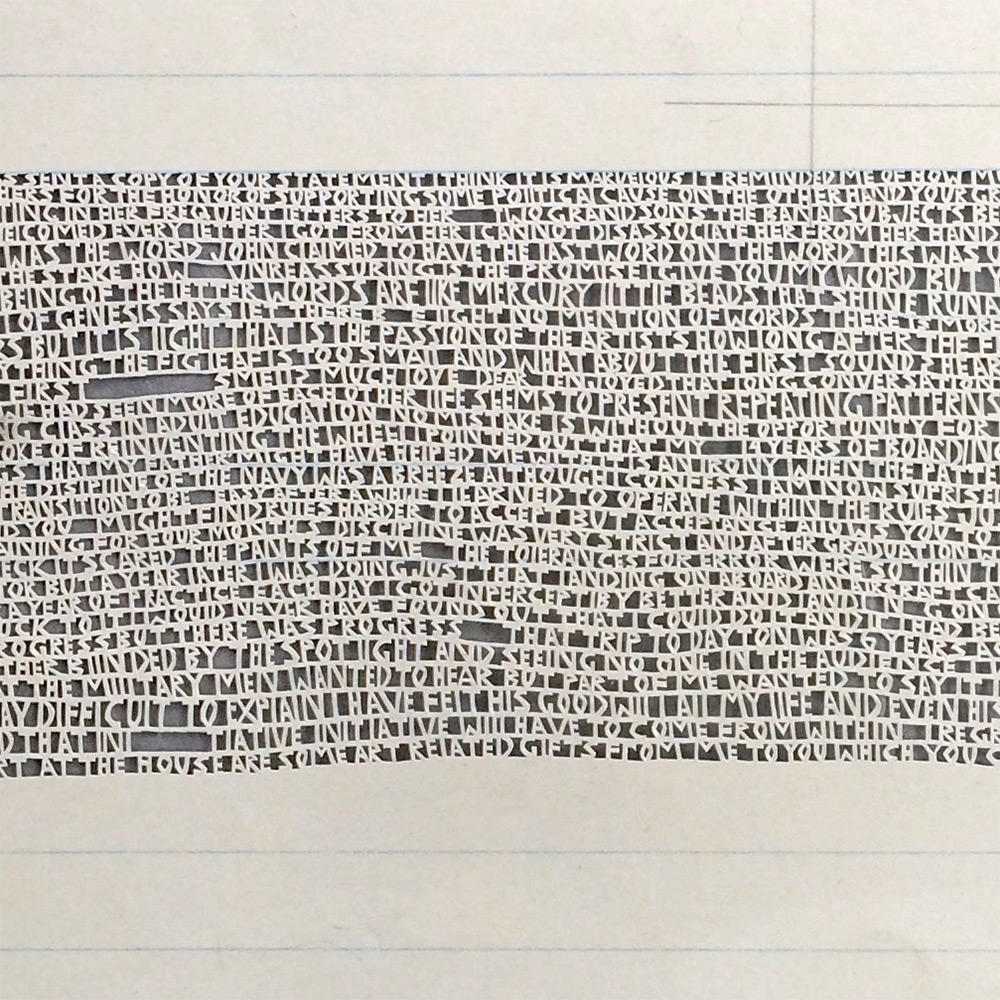 SENT A COPY OF YOUR STATEMENT I THINK IT IS MARVELOUS REMINDED ME OF HOW
HERS FOR THE HONOR OF SUPPORTING SO WORTHY A CAUSE ON THE OTHER HAND YOUR
IN HER FREQUENT LETTERS TO HER TWO GRANDSONS THE BANAL SUBJECTS
EVERY LETTER I GOT FROM HER I CANNOT DISASSOCIATE HER FROM HER HAND
WAS THE WORD JOHN CLAIMED TO HAVE THE LAST WORD OR THE WORD THIS WAS
TAKE HOW UNREASSURING IS THE PROMISE I GIVE YOU MY WORD BUT
BEING OF THE LETTER WORDS ARE LIKE MERCURY LITTLE BEADS THAT SHINE
OF GENESIS SAYS LET THERE BE LIGHT NO MENTION OF WORDS THERE IS MORE
BUT IT IS LIGHT THAT IS THE PASSION OF THE ARTISTS WHO LOOKING AFTER THE
THE FIG LEAF IS TOO SMALL AND WHAT ABOUT THE FIRST SOUND
FIRST SMELL? MUCH LOVE DEAR I ENJOYED THAT LONG CONVERSATION
HAD SEEN MORE OF EACH OTHER LIFE SEEMS TO PRESENT REPEATING PATTERNS
CLASS WITHOUT EDUCATION NO MISTAKE IS WITHOUT THE OPPORTUNITY
OF REINVENTING THE WHEEL I POINTED OUT THAT MY YEARS OF BOARDING
THAT MY MIGHT HAVE HELPED ME THOUGH IT IS AN IRONY WHEN THE
THE DISIPLINE OF THE NAVY WAS A BREEZE I MUST CONFESS I AM NOW SUPRISED
TRANSITION TO BE EASY AFTER AWHILE I LEARNED TO OPERATE WITHIN THE RULES
YOU MIGHT FIND RULES HARDER TO ACCEPT BUT ACCEPTANCE ALLOWS
FOR FOUR MONTHS DISCIPLINE WAS VERY STRICT AND AFTER GRADUATION
IT SCARED THE PANTS OFF ME THE TOLERANCES FOR ERROR WERE SO THIN
BUT A YEAR LATER I WAS DOING JUST THAT LANDING ON ABOARD
A YEAR OF PRACTICE EACH DAY I GOT INPERCEPTIBLY BETTER AND LANDING
I WOULD NEVER HAVE FOUND OUT THAT I COULD DO
PROGRESS BUT THERE WAS PROGRESS THAT TRIP TO DAYTON WAS
BLINDED BY THE SPOTLIGHT AND SEEING NO ONE IN THE AUDIENCE
THE MILITARY MEN WANTED TO HEAR BUT PART OF ME WANTED TO SAY
DIFFICULT TO EXPLAIN I HAVE FELT THIS GOOD WILL ALL MY LIFE AND EVEN
THAT INITIATIVE INITIATIVE WILL HAVE TO COME FROM WITHIN I REGRET
AT THE HOUSE ARE SOME ART RELATED GIFTS FROM ME TO YOU WHICH YOU